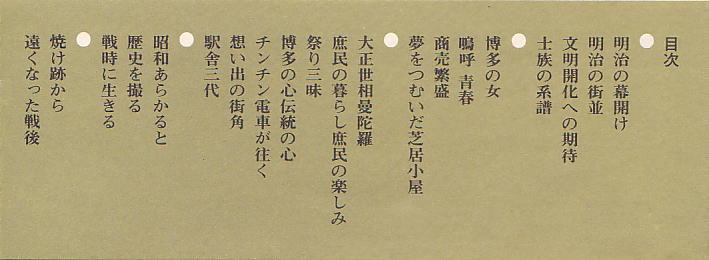 目次
●
明治の幕開け
明治の街並
文明開化への期待
士族の系譜
●
博多の女
嗚呼 青春
商売繁盛
夢をつむいだ芝居小屋
●
大正世相曼陀羅
庶民の暮らし庶民の楽しみ
祭り三昧
博多の心伝統の心
チンチン電車が往く
想い出の街角
駅舎三代
●
昭和あらかると
歴史を撮る
戦時に生きる
●
焼け跡から
遠くなった戦後